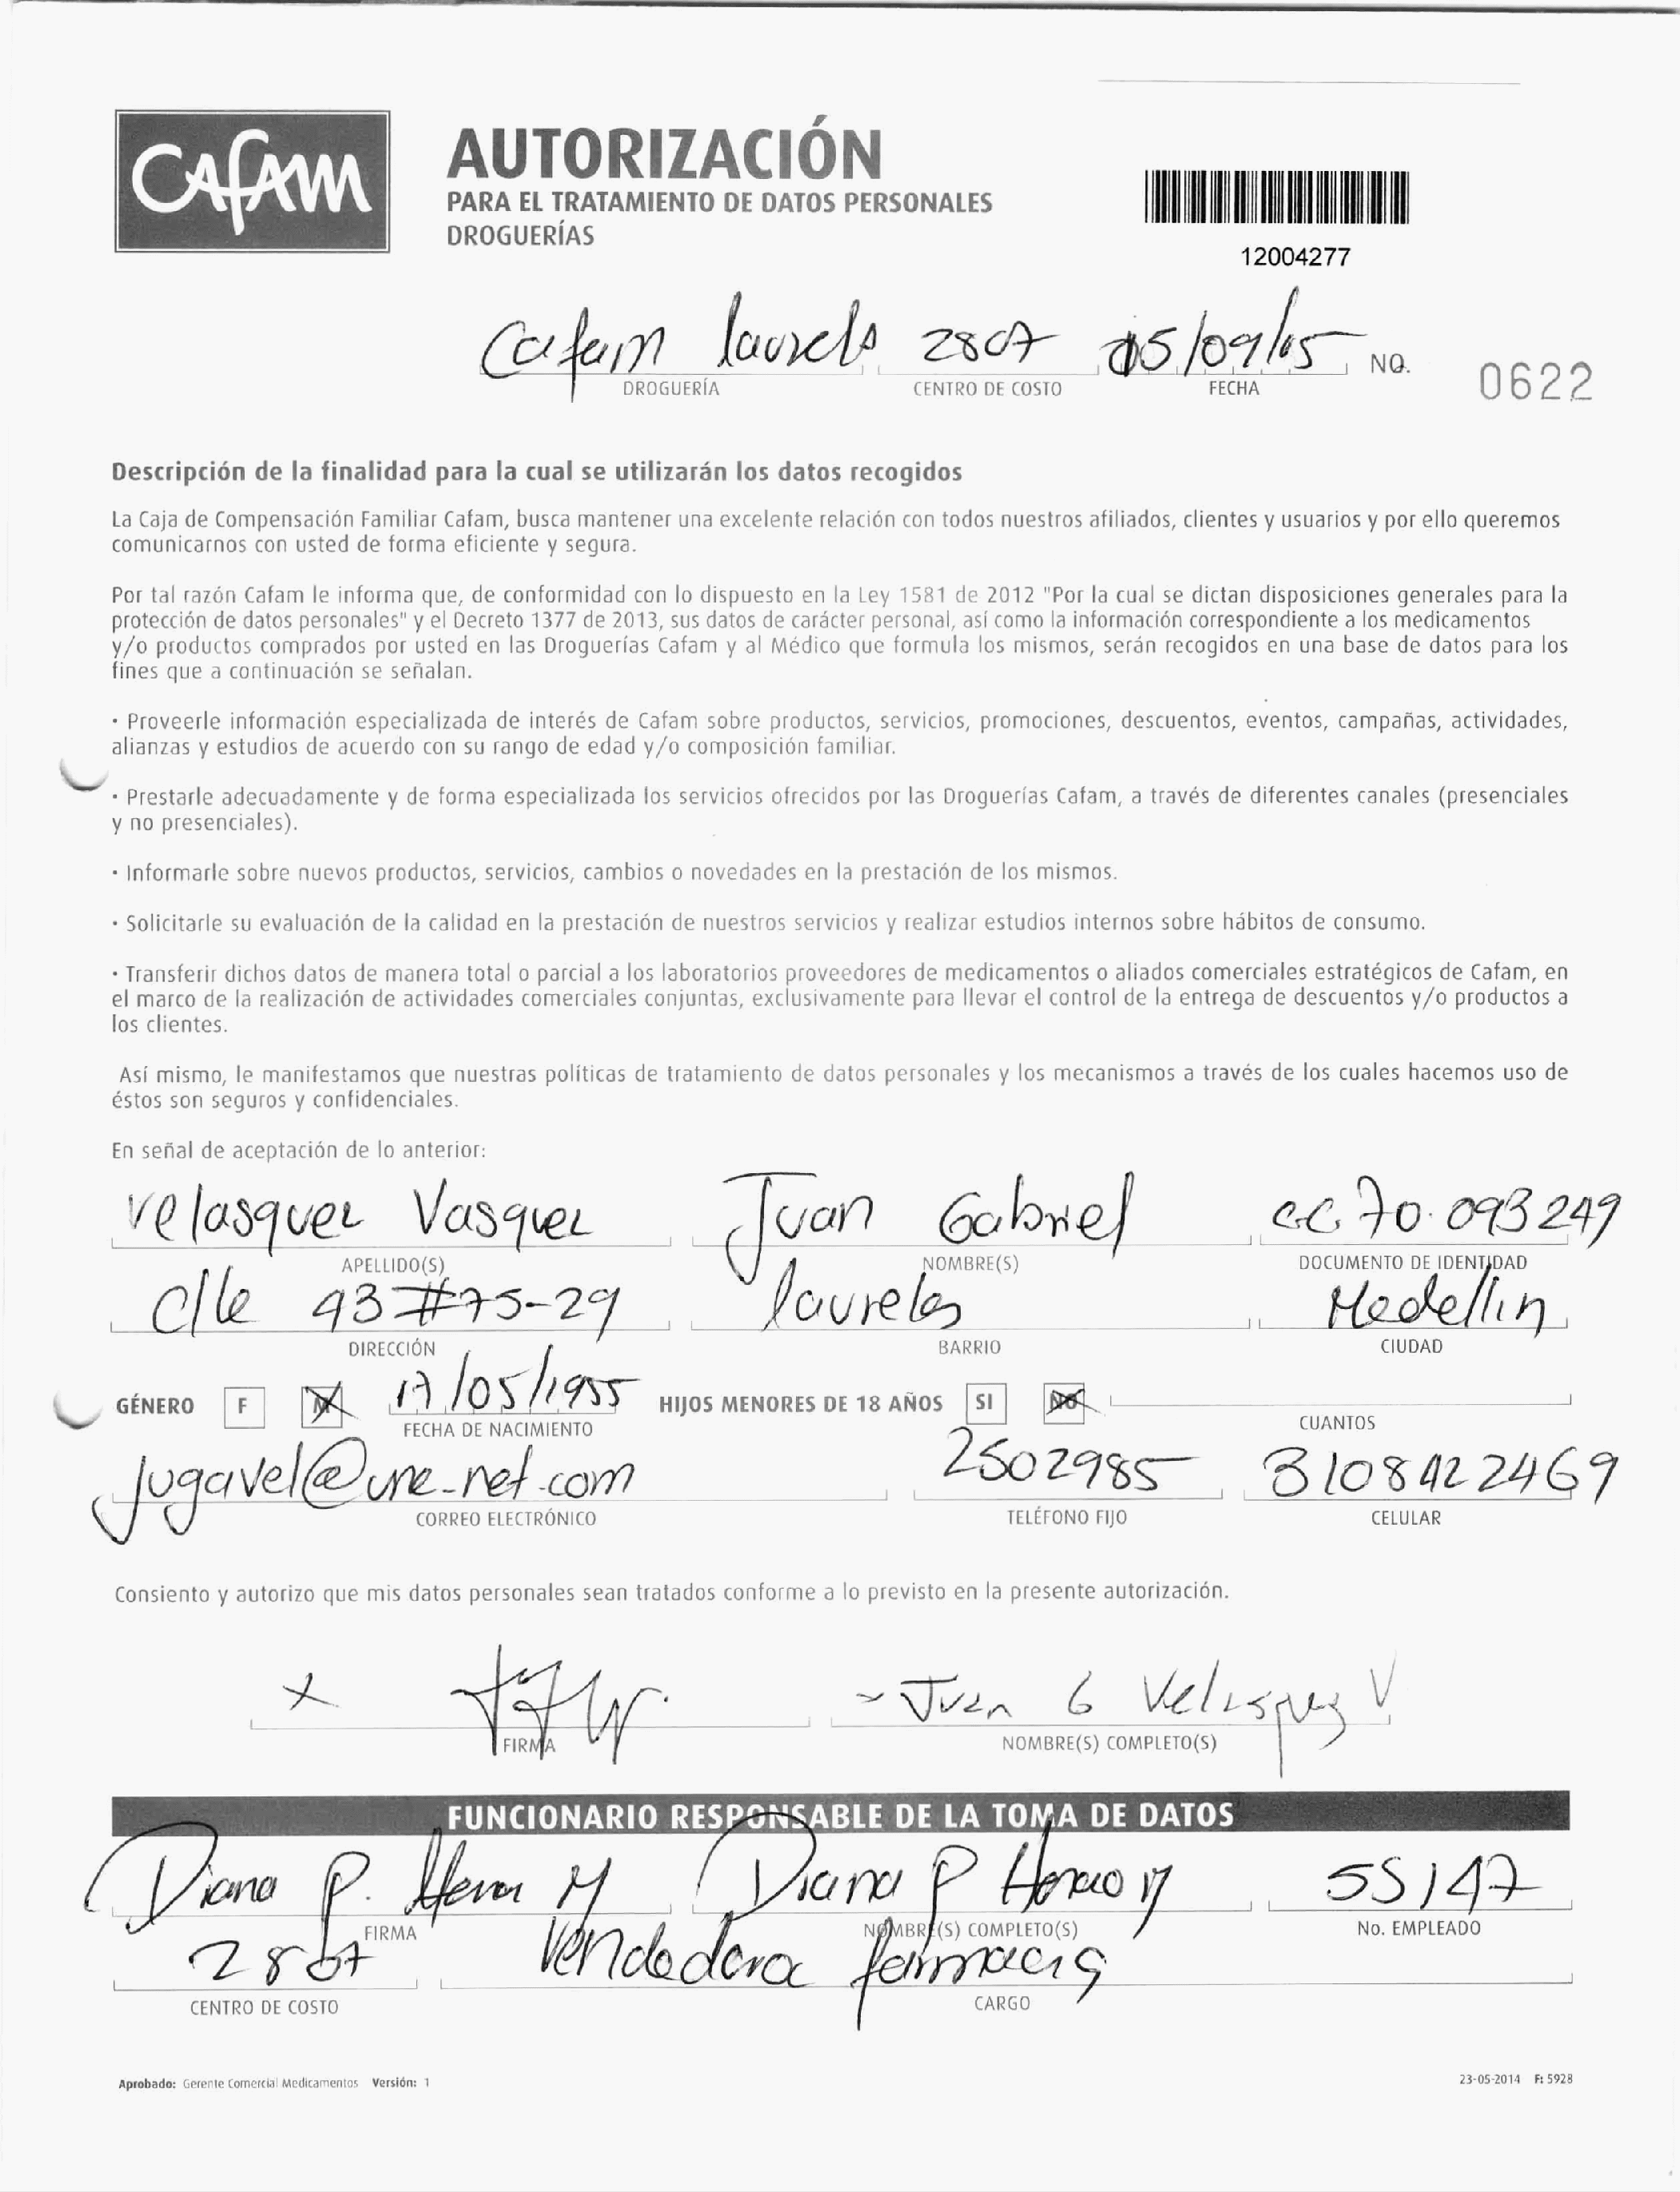 CAFAM
AUTORIZACIÓN
PARA EL TRATAMIENTO DE DATOS PERSONALES
DROGUERÍAS
12004277
Cafam laurels 2807 05/09/15 NO. 0622
DROGUERÍA CENTRO DE COSTO FECHA
Descripción de la finalidad para la cual se utilizarán los datos recogidos
La Caja de Compensación Familiar Cafam, busca mantener una excelente relación con todos nuestros afiliados, clientes y usuarios y por ello queremos
comunicarnos con usted de forma eficiente y segura.
Por tal razón Cafam le informa que, de conformidad con lo dispuesto en la Ley 1581 de 2012 "Por la cual se dictan disposiciones generales para la
protección de datos personales" y el Decreto 1377 de 2013, sus datos de carácter personal, así como la información correspondiente a los medicamentos
y/o productos comprados por usted en las Droguerías Cafam y al Médico que formula los mismos, serán recogidos en una base de datos para los
fines que a continuación se señalan.
· Proveerle información especializada de interés de Cafam sobre productos, servicios, promociones, descuentos, eventos, campañas, actividades,
alianzas y estudios de acuerdo con su rango de edad y/o composición familiar.
· Prestarle adecuadamente y de forma especializada los servicios ofrecidos por las Droguerías Cafam, a través de diferentes canales (presenciales
y no presenciales).
· Informarle sobre nuevos productos, servicios, cambios o novedades en la prestación de los mismos.
· Solicitarle su evaluación de la calidad en la prestación de nuestros servicios y realizar estudios internos sobre hábitos de consumo.
· Transferir dichos datos de manera total o parcial a los laboratorios proveedores de medicamentos o aliados comerciales estratégicos de Cafam, en
el marco de la realización de actividades comerciales conjuntas, exclusivamente para llevar el control de la entrega de descuentos y/o productos a
los clientes.
Así mismo, le manifestamos que nuestras políticas de tratamiento de datos personales y los mecanismos a través de los cuales hacemos uso de
éstos son seguros y confidenciales.
En señal de aceptación de lo anterior:
Velasquez Vasquez Juan Gabriel CC 70.093249
APELLIDO(S) NOMBRE(S) DOCUMENTO DE IDENTIDAD
Clle 93#75-29 laureles Medellin
DIRECCIÓN BARRIO CIUDAD
GÉNERO F M 17/05/1955 HIJOS MENORES DE 18 AÑOS SI NO
FECHA DE NACIMIENTO CUANTOS
jugavel@une-net.com 2502985 3108422469
CORREO ELECTRÓNICO TELÉFONO FIJO CELULAR
Consiento y autorizo que mis datos personales sean tratados conforme a lo previsto en la presente autorización.
x - Juan G Velasquez V
FIRMA NOMBRE(S) COMPLETO(S)
FUNCIONARIO RESPONSABLE DE LA TOMA DE DATOS
Diana P. Henao M Diana P Henao M 55147
FIRMA NOMBRE(S) COMPLETO(S) No. EMPLEADO
2807 Vendedora farmacia
CENTRO DE COSTO CARGO
Aprobado: Gerente Comercial Medicamentos Versión: 1 23-05-2014 F: 5928